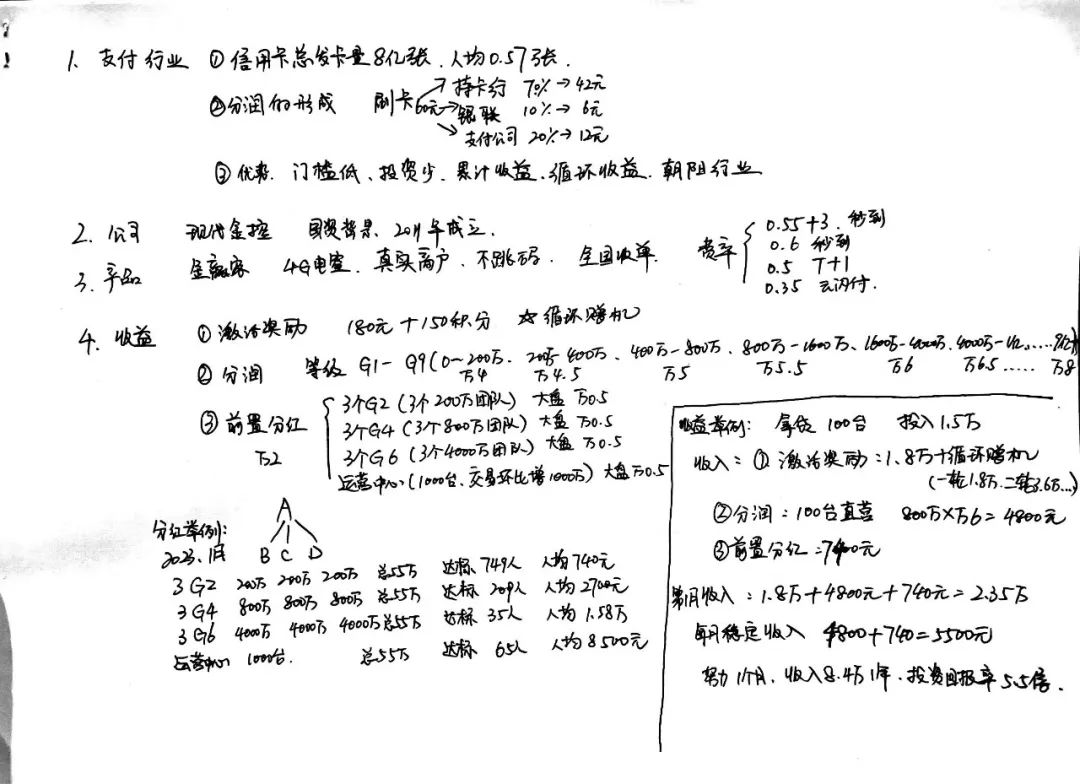 1. 支付行业 ①信用卡总发卡量8亿张、人均0.57张.
②分润的形成 刷卡60元→ 持卡行 70%→42元
银联 10%→6元
支付公司 20%→12元
③优势. 门槛低、投资少、累计收益、循环收益、朝阳行业
2. 公司 现代金控 国资背景、2011年成立.
3. 产品 金融家 4G电签、真实商户、不跳码、全国收单. 费率
0.55+3、秒到
0.6 秒到
0.5 T+1
0.35 云闪付.
4. 收益 ①激活奖励 180元+150积分 ☆循环赠机
②分润 等级 G1-G9(0~200万、200万-400万、400万-800万、800万-1600万、1600万-4000万、4000万-1亿......9亿)
万4 万4.5 万5 万5.5 万6 万6.5 ...... 万8
③前置分红 万2
3个G2(3个200万团队) 大盘 万0.5
3个G4(3个800万团队) 大盘 万0.5
3个G6(3个4000万团队) 大盘 万0.5
运营中心(1000台、交易环比增1000万)大盘万0.5
分红举例:
A
2023、1月 B C D
3G2 200万 200万 200万 总55万 达标 749人 人均740元
3G4 800万 800万 800万 总55万 达标 209人 人均2700元
3G6 4000万 4000万 4000万 总55万 达标 35人 人均1.58万
运营中心 1000台. 总55万 达标 65人 人均8500元
收益举例: 拿货100台 投入1.5万
收入:①激活奖励:1.8万+循环赠机
(一轮1.8万.二轮3.6万...)
②分润:100台直营 800万×万6=4800元
③前置分红=740元
第1月收入:1.8万+4800元+740元=2.35万
每月稳定收入 4800+740=5500元
努力1个月、收入8.4万1年、投资回报率5.5倍.